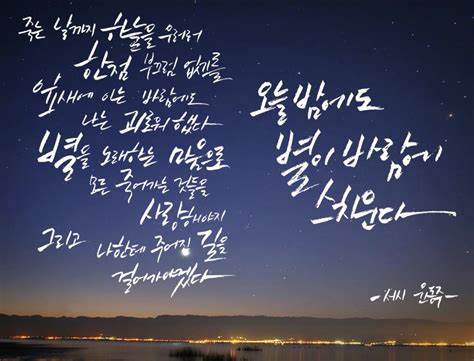 죽는 날까지 하늘을 우러러
한점 부끄럼 없기를
잎새에 이는 바람에도
나는 괴로워 했다
별을 노래하는 마음으로
모든 죽어가는 것들을
사랑해야지
그리고 나한테 주어진 길을
걸어가야겠다
오늘 밤에도
별이 바람에
스치운다
-서시 윤동주-